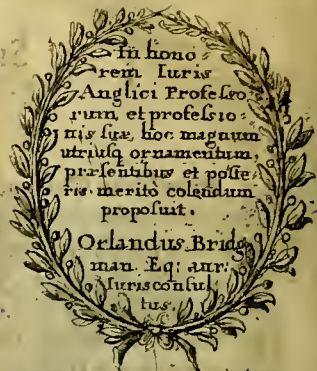 In hono
rem Iuris
Anglici Professo
rum, et professio:
nis suæ, hoc magnum
utriusq ornamentum,
præsentibus et poste
ris merito colendum
proposuit.
Orlandus Bridg
man. Eq: aur:
Iurisconsul
tus.